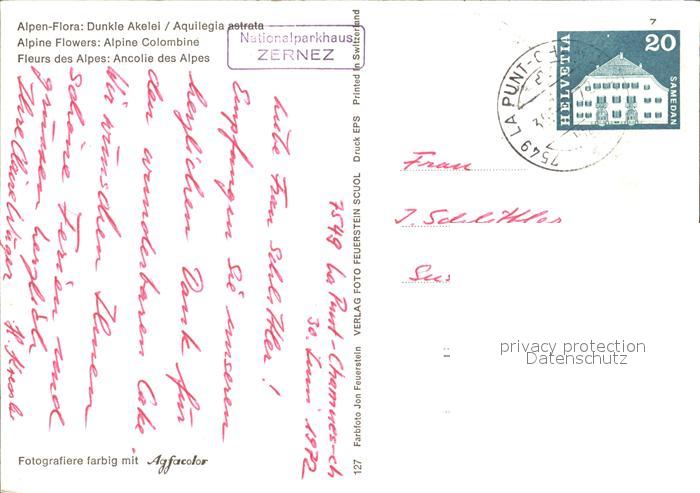 Alpen-Flora: Dunkle Akelei / Aquilegia astrata
Alpine Flowers: Alpine Colombine
Fleurs des Alpes: Ancolie des Alpes
Nationalparkhaus
ZERNEZ
7549 La Punt-Chamues-ch
30. Juni 1972
Liebe Frau Schlittler!
Empfangen Sie unseren
herzlichen Dank für
den wunderbaren Cake.
Wir wünschen Ihnen
schöne Ferien und
grüssen herzlich
Ihre
Fotografiere farbig mit Agfacolor
127 Farbfoto Jon Feuerstein VERLAG FOTO FEUERSTEIN SCUOL Druck EPS Printed in Switzerland
7
HELVETIA
20
SAMEDAN
7549 LA PUNT-CH
Frau
J. Schlittler
Sus
privacy protection
Datenschutz